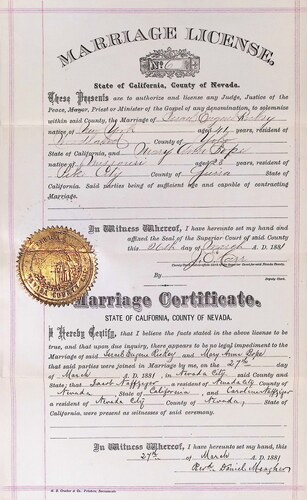 MARRIAGE LICENSE,
No 6
State of California, County of Nevada.
These Presents are to authorize and license any Judge, Justice of the
Peace, Mayor, Priest or Minister of the Gospel of any denomination, to solemnize
within said County, the Marriage of
native of New York aged 41 years, resident of
County of
State of California, and Mary Ann Pope
native of Missouri aged 23 years, resident of
City County of State of
California. Said parties being of sufficient age and capable of contracting
Marriage.
In Witness Whereof, I have hereunto set my hand and
affixed the Seal of the Superior Court of said County
this 26th day of March A. D. 1881
By
Deputy Clerk.
Marriage Certificate.
STATE OF CALIFORNIA, COUNTY OF NEVADA.
I Hereby Certify, that I believe the facts stated in the above license to be
true, and that upon due inquiry, there appears to be no legal impediment to the
Marriage of said Eugene and Mary Anna Pope
that said parties were joined in Marriage by me, on the 27th day of
March A. D. 1881, in Nevada City said County and
State; that Jacob Naffziger a resident of Nevada City County of
Nevada, State of California, and Caroline Naffziger
a resident of Nevada City County of Nevada, State of
California, were present as witnesses of said ceremony.
In Witness Whereof, I have hereunto set my hand, this
27th day of March A. D. 1881
Revd. Daniel Meagher